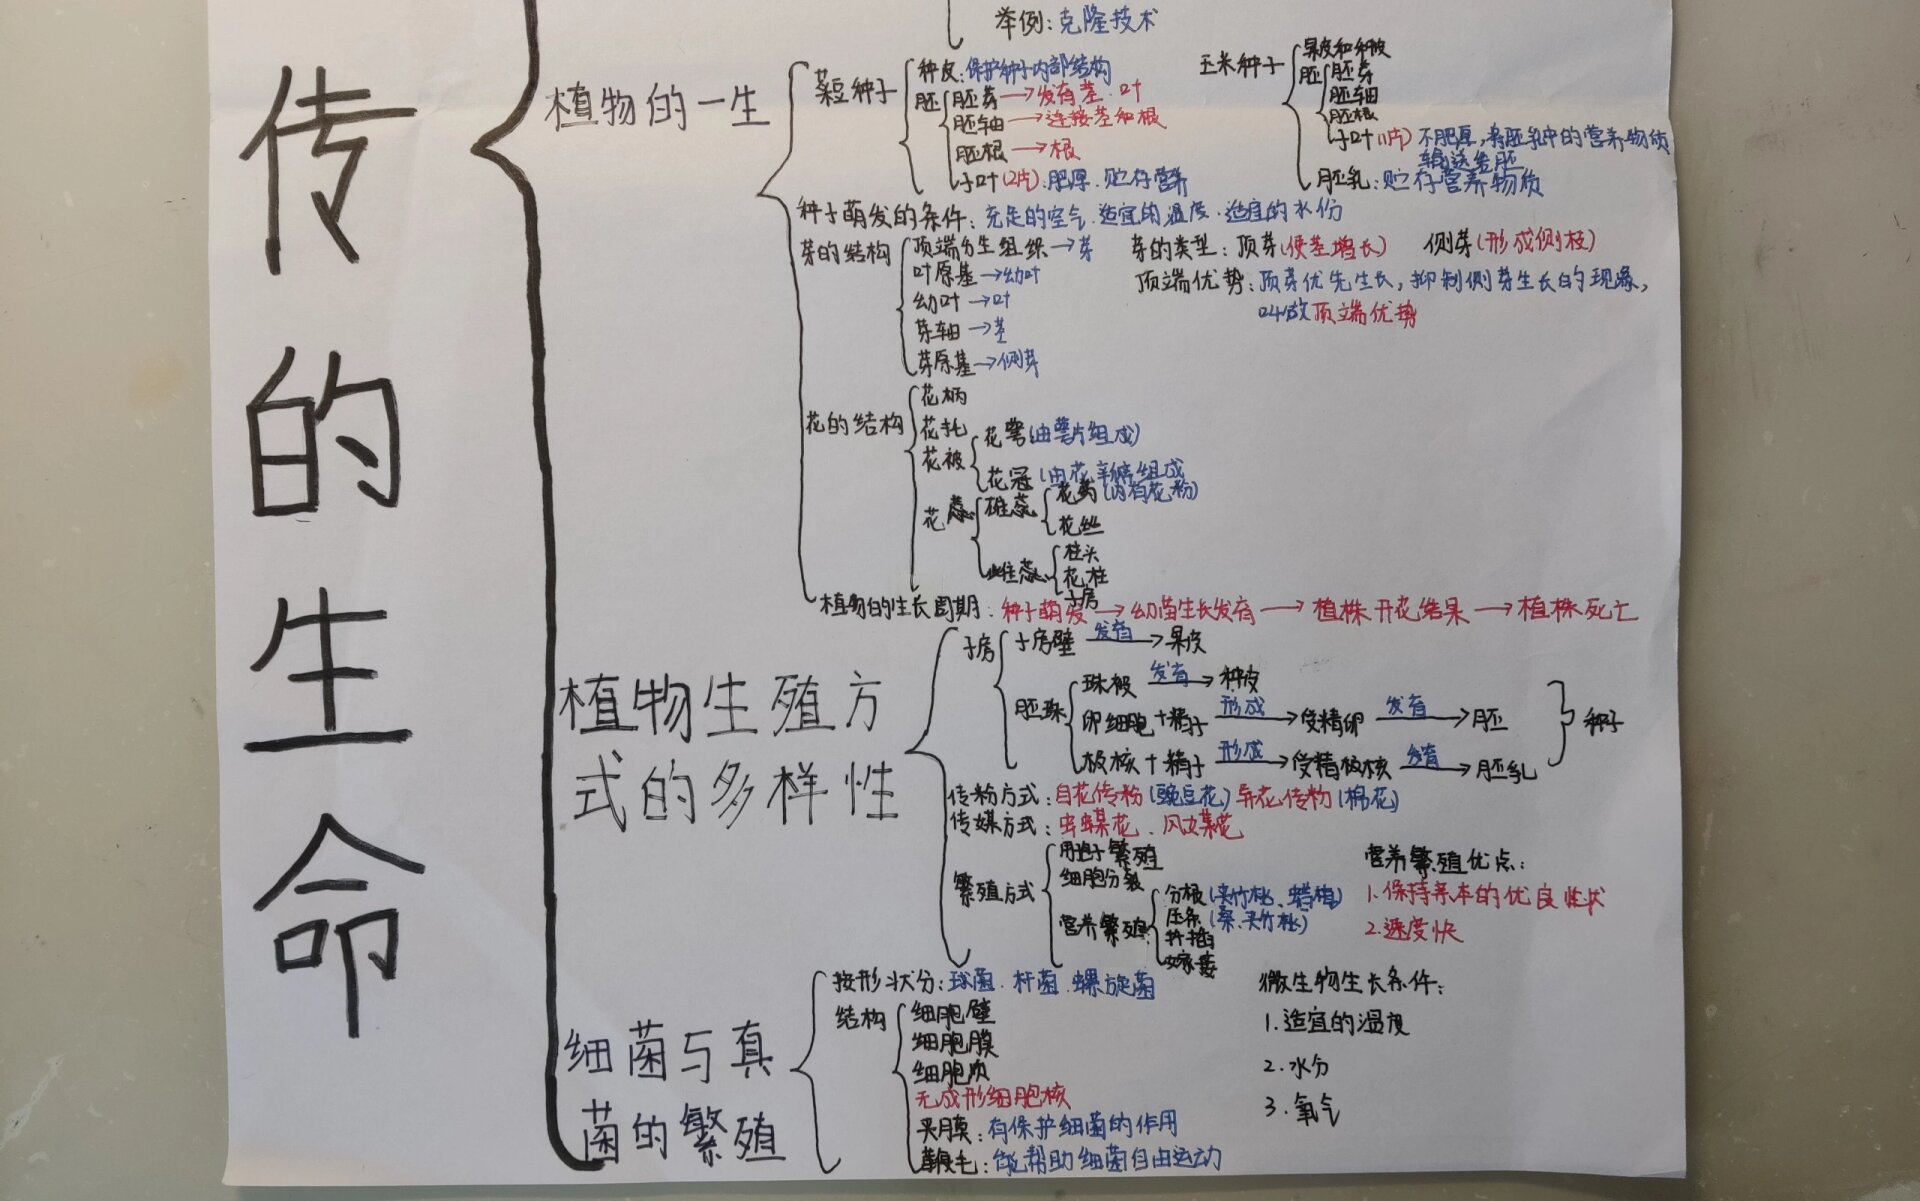 举例：克隆技术
传的生命
植物的一生
菜豆种子
种皮：保护种子内部结构
胚
胚芽→发育茎、叶
胚轴→连接茎和根
胚根→根
子叶(2片)：肥厚、贮存营养
玉米种子
果皮和种皮
胚
胚芽
胚轴
胚根
子叶(1片) 不肥厚，将胚乳中的营养物质
输送给胚
胚乳：贮存营养物质
种子萌发的条件：充足的空气、适宜的温度、适宜的水份
芽的结构
顶端分生组织→芽
叶原基→幼叶
幼叶→叶
芽轴→茎
芽原基→侧芽
芽的类型：顶芽(使茎增长) 侧芽(形成侧枝)
顶端优势：顶芽优先生长，抑制侧芽生长的现象，
叫做顶端优势
花的结构
花柄
花托
花被
花萼(由萼片组成)
花冠(由花瓣组成
花蕊
雄蕊
花药(内有花粉)
花丝
雌蕊
柱头
花柱
子房
植物的生长周期：种子萌发→幼苗生长发育→植株开花结果→植株死亡
植物生殖方
式的多样性
子房
子房壁 发育→果皮
胚珠
珠被 发育→种皮
卵细胞+精子 形成→受精卵 发育→胚
极核+精子 形成→受精极核 发育→胚乳
种子
传粉方式：自花传粉(豌豆花) 异花传粉(棉花)
传媒方式：虫媒花、风媒花
繁殖方式
孢子繁殖
细胞分裂
营养繁殖
分根(夹竹桃、蜡梅)
压条(桑、夹竹桃)
扦插
嫁接
营养繁殖优点：
1.保持亲本的优良性状
2.速度快
细菌与真
菌的繁殖
按形状分：球菌、杆菌、螺旋菌
结构
细胞壁
细胞膜
细胞质
无成形细胞核
荚膜：有保护细菌的作用
鞭毛：能帮助细菌自由运动
微生物生长条件：
1.适宜的温度
2.水分
3.氧气